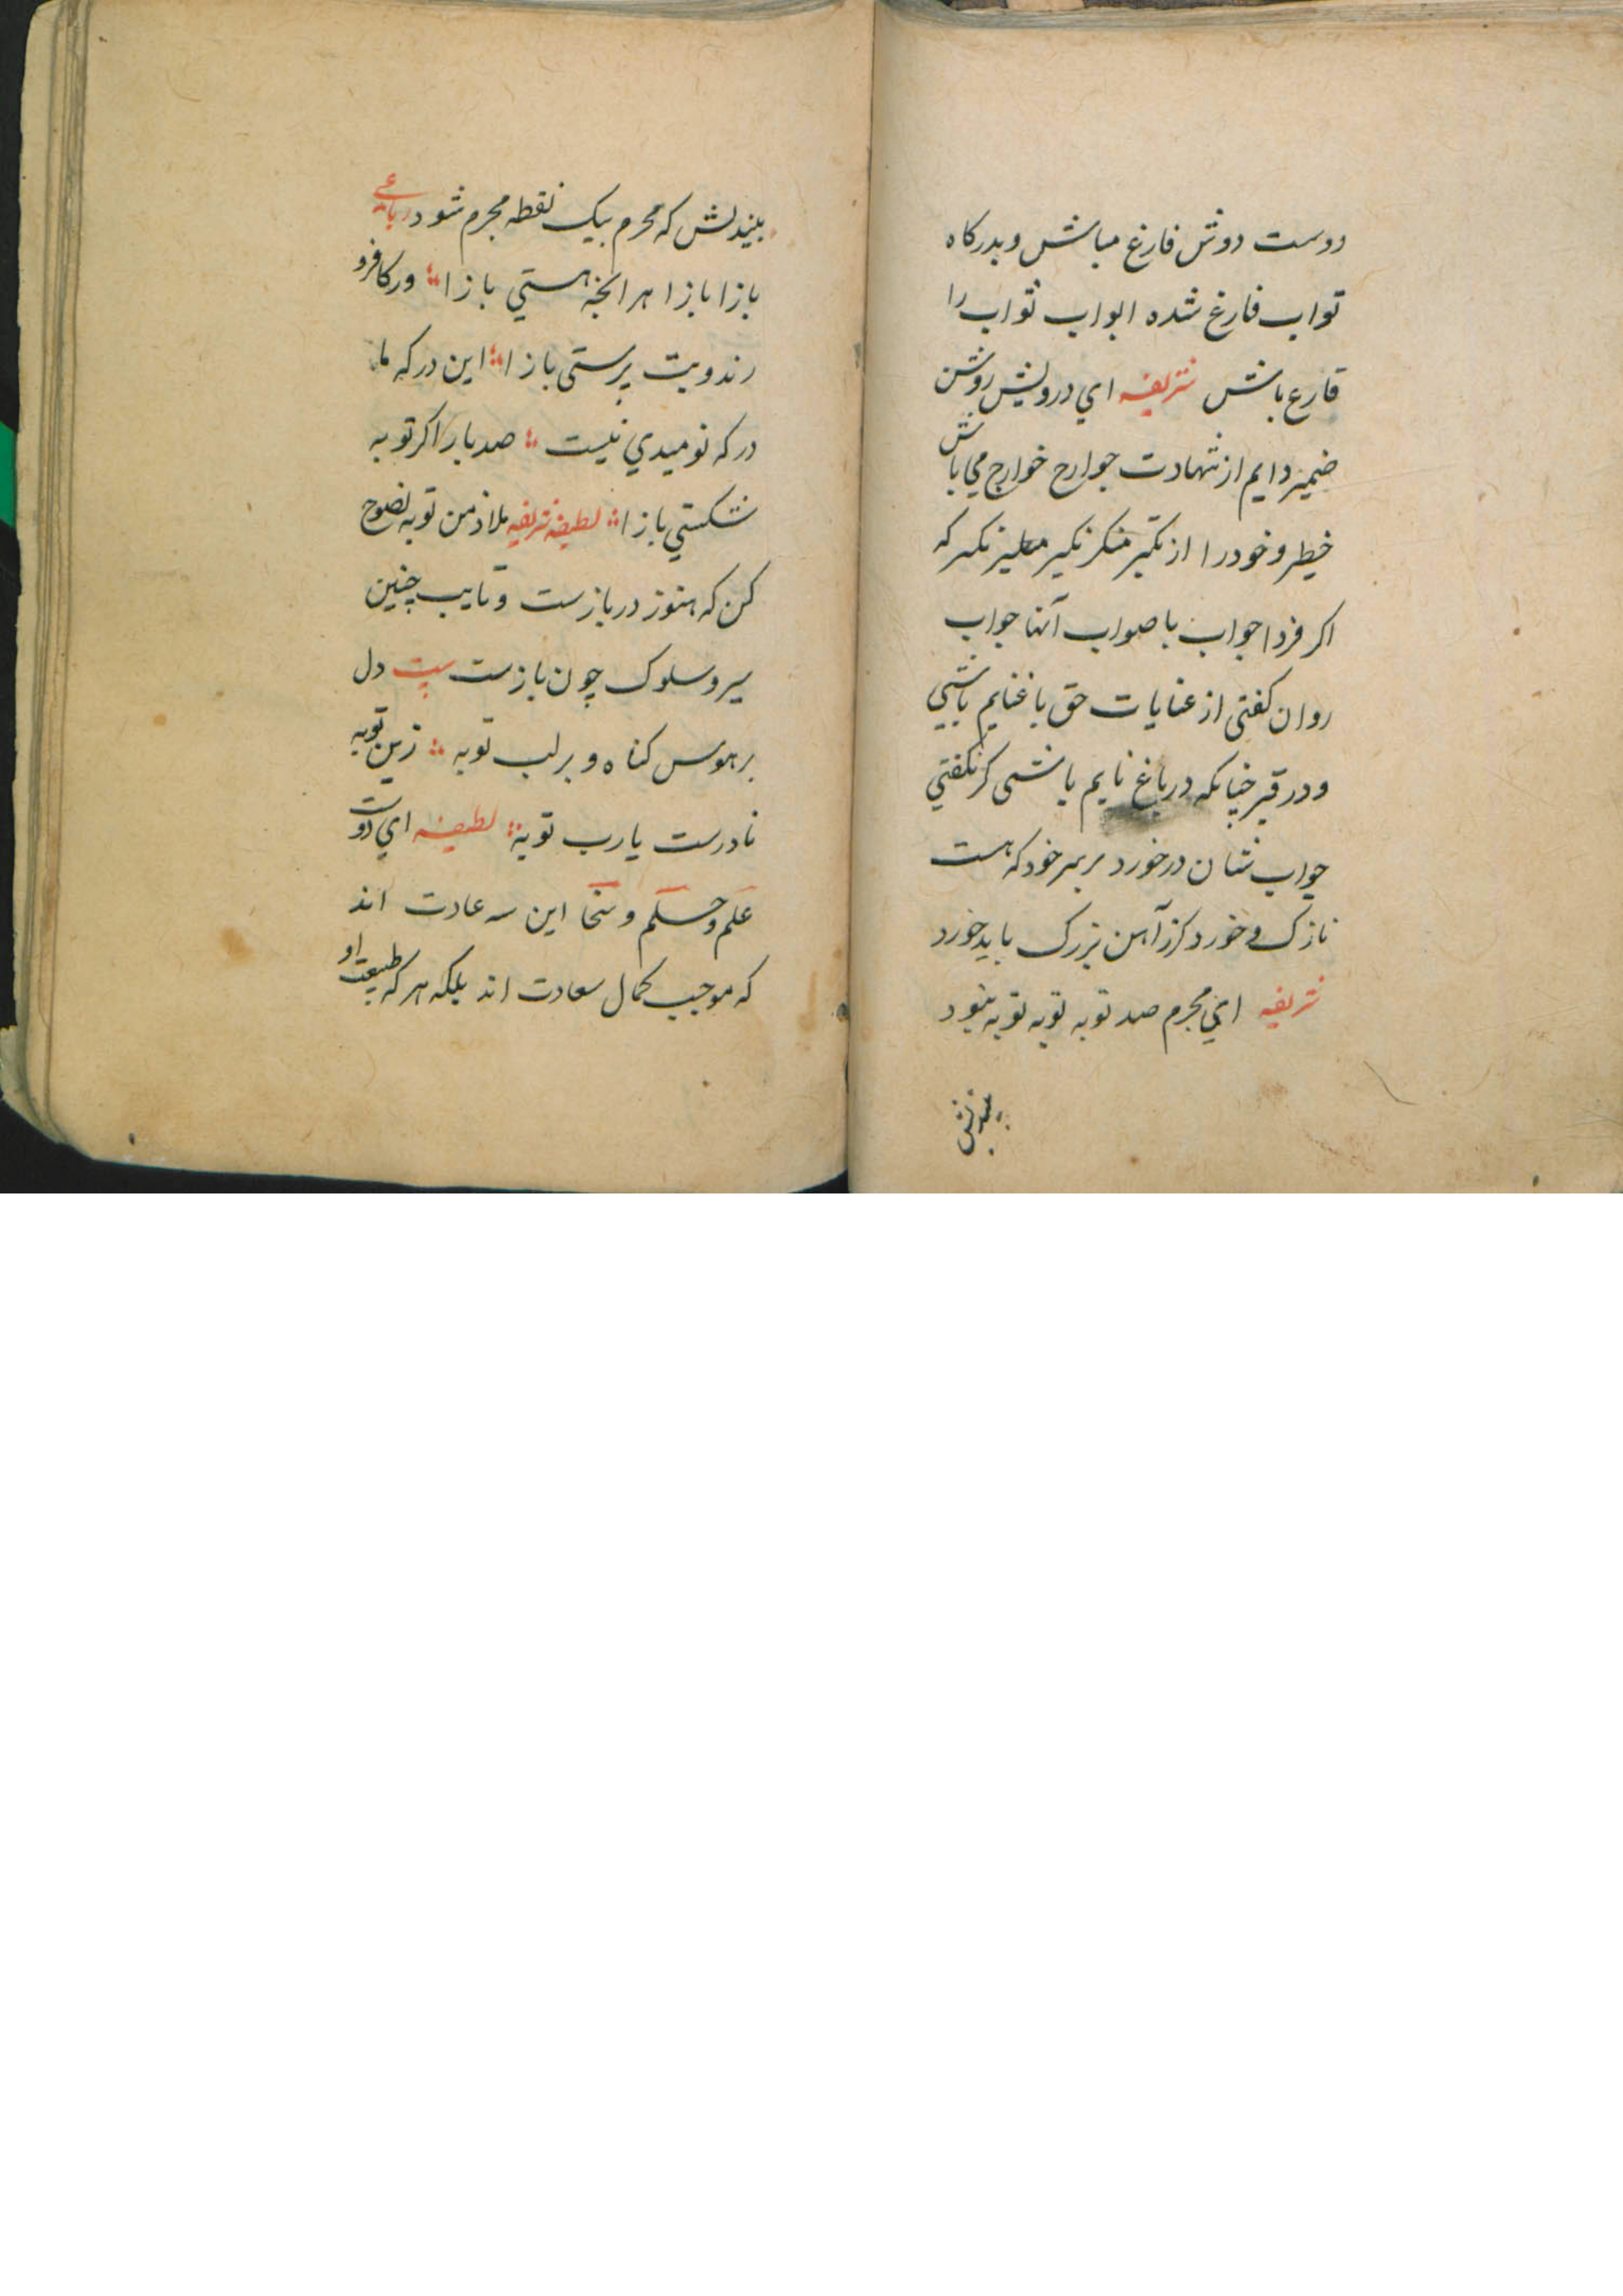 دوست دوش فارغ مباش و بدرکاه
تواب فارغ شده ابواب ثواب را
قارع باش شریفه ای درویش روشن
ضمیر دایم از شهادت جوارح خوارج می باش
خیطر و خود را از نکیر منکر نکیر مکیر که
اکر فردا جواب با صواب آنها جواب
روان کفتی از عنایات حق با غنایم باشی
و در قبر چنانکه در باغ نایم باشی کر نکفتی
جواب شان در خورد بر سر خود که هست
نازک و خورد کرز آهن بزرک باید خورد
شریفه ای مجرم صد توبه توبه توبه بنود
بیندیش
بیندیش که محرم بیک نقطه مجرم شود رباعی
بازا بازا هر انچه هستی بازا ور کافر و
رند و بت پرستی بازا این درکه ما
درکه نومیدی نیست صد بار اکر توبه
شکستی بازا لطیفه شریفه ملاذ من توبه نصوح
کن که هنوز در بازست و تایب چنین
سیر و سلوک چون بازست بیت دل
بر هوس کناه و بر لب توبه زین توبه
نادرست یارب توبه لطیفه ای دوست
علم و حلم و سخا این سه عادت اند
که موجب کمال سعادت اند بلکه هر که طبیعت او